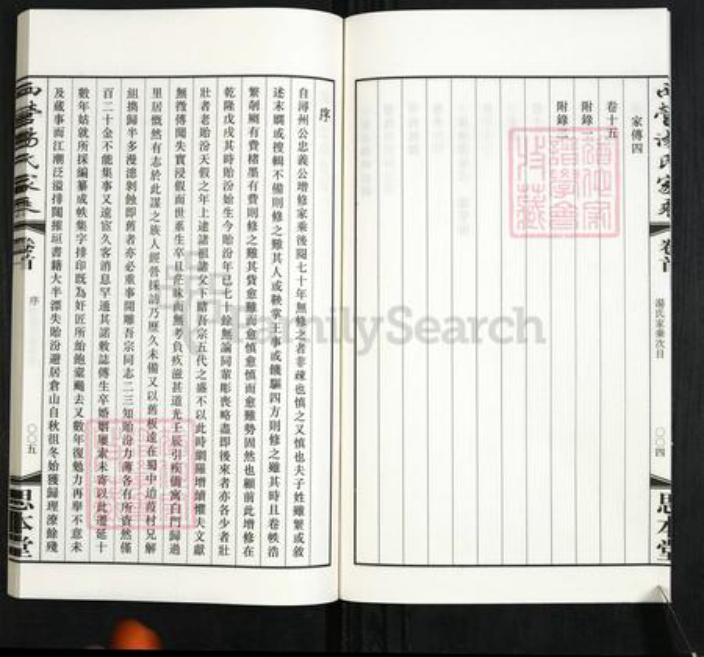 家傳四
卷十五
附錄一
附錄二
西營湯氏家乘
卷首
湯氏家乘次目
〇〇四
思本堂
序
自潯州公忠義公增修家乘後閱七十年無修之者非疎也慎之又慎也夫子姓雖繁或敘
述末嫻或搜輯不備則修之難其人或鞅掌王事或饑驅四方則修之難其時且卷帙浩
繁剞劂有費楮墨有費則修之難其貲愈難而愈慎愈慎而愈難勢固然也顧前此增修在
乾隆戊戌其時貽汾始生今貽汾年已七十餘無論同輩彫喪略盡即後來者亦各少者壯
壯者老貽汾天假之年上逮諸祖諸父下睹吾宗五代之盛不以此時網羅增續懼夫文獻
無徵傳聞失實浸假而世系生卒且茫昧而無考負疚滋甚道光壬辰引疾僑寓白門歸過
里居慨然有志於此謀之族人經營採訪乃歷久未備又以舊板遠在蜀中迨葭村兄解
組攜歸半多漫漶剝蝕即舊者亦必重事開雕吾宗同志二三知貽汾力薄各有所資然僅
百二十金不能集事又遠宦久客消息罕通其諾敕誌傳生卒婚姻屢索未寄以此遷延十
數年姑就所採編纂成帙集字排印既為奸匠所紿飽橐颺去又數年復勉力再舉不意未
及蕆事而江潮泛溢排闥摧垣書籍大半漂失貽汾避居倉山自秋徂冬始獲歸理潦餘殘
西營湯氏家乘
卷首
序
〇〇五
思本堂
FamilySearch